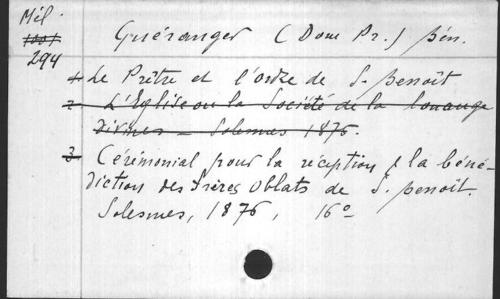 Mél.
1001
294
Guéranger (Dom Pr.) bén.
1 Le Prêtre et l'ordre de S. Benoît
2 L'Eglise ou la Société de la louange
divines — Solesmes 1875.
3 Cérémonial pour la réception & la béné-
diction des Frères Oblats de S. Benoît.
Solesmes, 1876, 16°